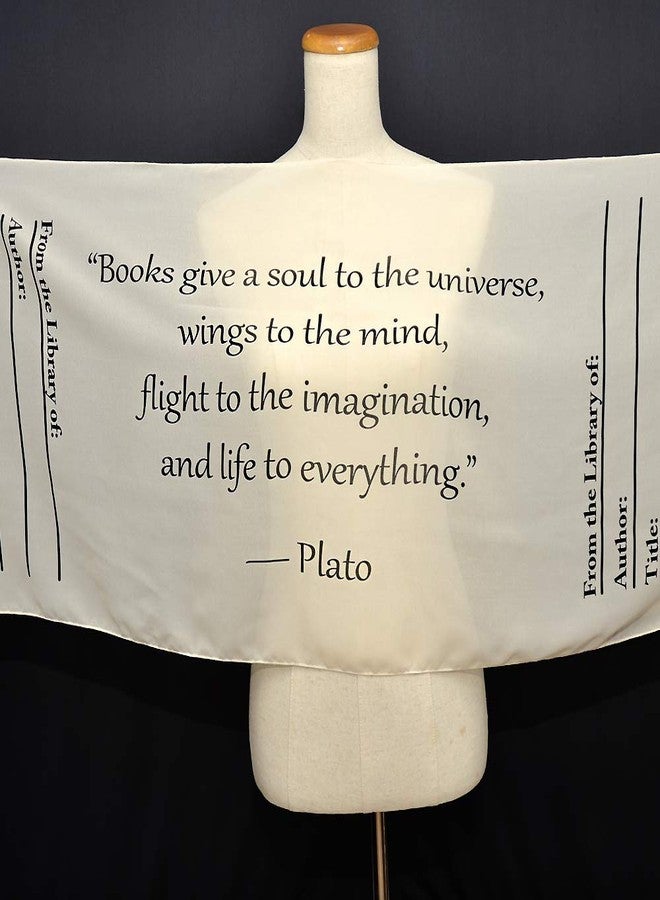 From the Library of:
Author:
“Books give a soul to the universe,
wings to the mind,
flight to the imagination,
and life to everything.”
— Plato
From the Library of:
Author:
Title: